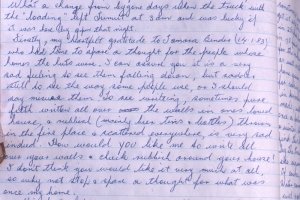 What a change from bygone days when the truck with
the "loading" left Dunedin at 3 am and was lucky if
it was
Finally my heartfelt gratitude to Tamara Binder
who had time to spare a thought for the people whose
homes the huts were. I can assure you it is a very
sad feeling to see them falling down, but sadder
still to see the way some people use, or I should
say misuse them. We are wanting, sometimes pure
filth written all over the walls in ones loved
house, & rubbish (mainly beer tins & bottles) thrown
in the fire place & scattered everywhere, is very sad
indeed. How would YOU like me to write all
over your walls & chuck rubbish around your house!
I dont think you would like it very much at all,
so why not stop & spare a thought for what was
once my home.